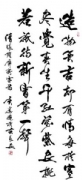 造物无言却有情每于寒
尽觉春生千红万紫安排
著只待新雷第一声